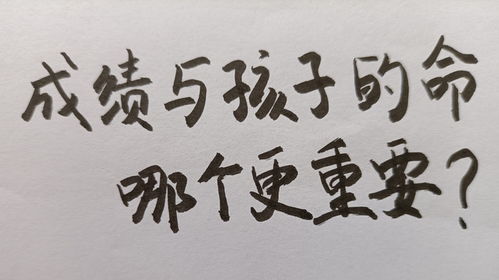 成绩与孩子的命
哪个更重要?